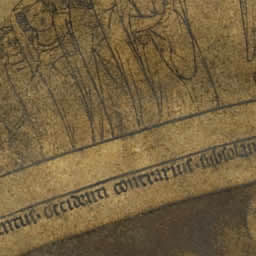 entus · occidenti contrarius · subsolan